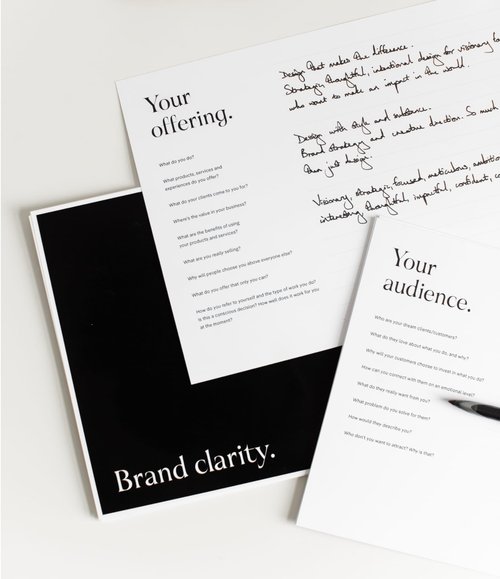 Your
offering.
What do you do?
What products, services and
experiences do you offer?
What do your clients come to you for?
Where's the value in your business?
What are the benefits of using
your products and services?
What are you really selling?
Why will people choose you above everyone else?
What do you offer that only you can?
How do you refer to yourself and the type of work you do?
Is this a conscious decision? How well does it work for you
at the moment?
Design that makes the difference.
Strategic, thoughtful, intentional design for visionary
who want to make an impact in the world.
Design with style and substance.
Brand strategy and creative direction. So much
than just design.
Visionary, strategic, focused, meticulous,
interesting, thoughtful, impactful, confident,
Your
audience.
Who are your dream clients/customers?
What do they love about what you do, and why?
Why will your customers choose to invest in what you do?
How can you connect with them on an emotional level?
What do they really want from you?
What problem do you solve for them?
How would they describe you?
Who don't you want to attract? Why is that?
Brand clarity.